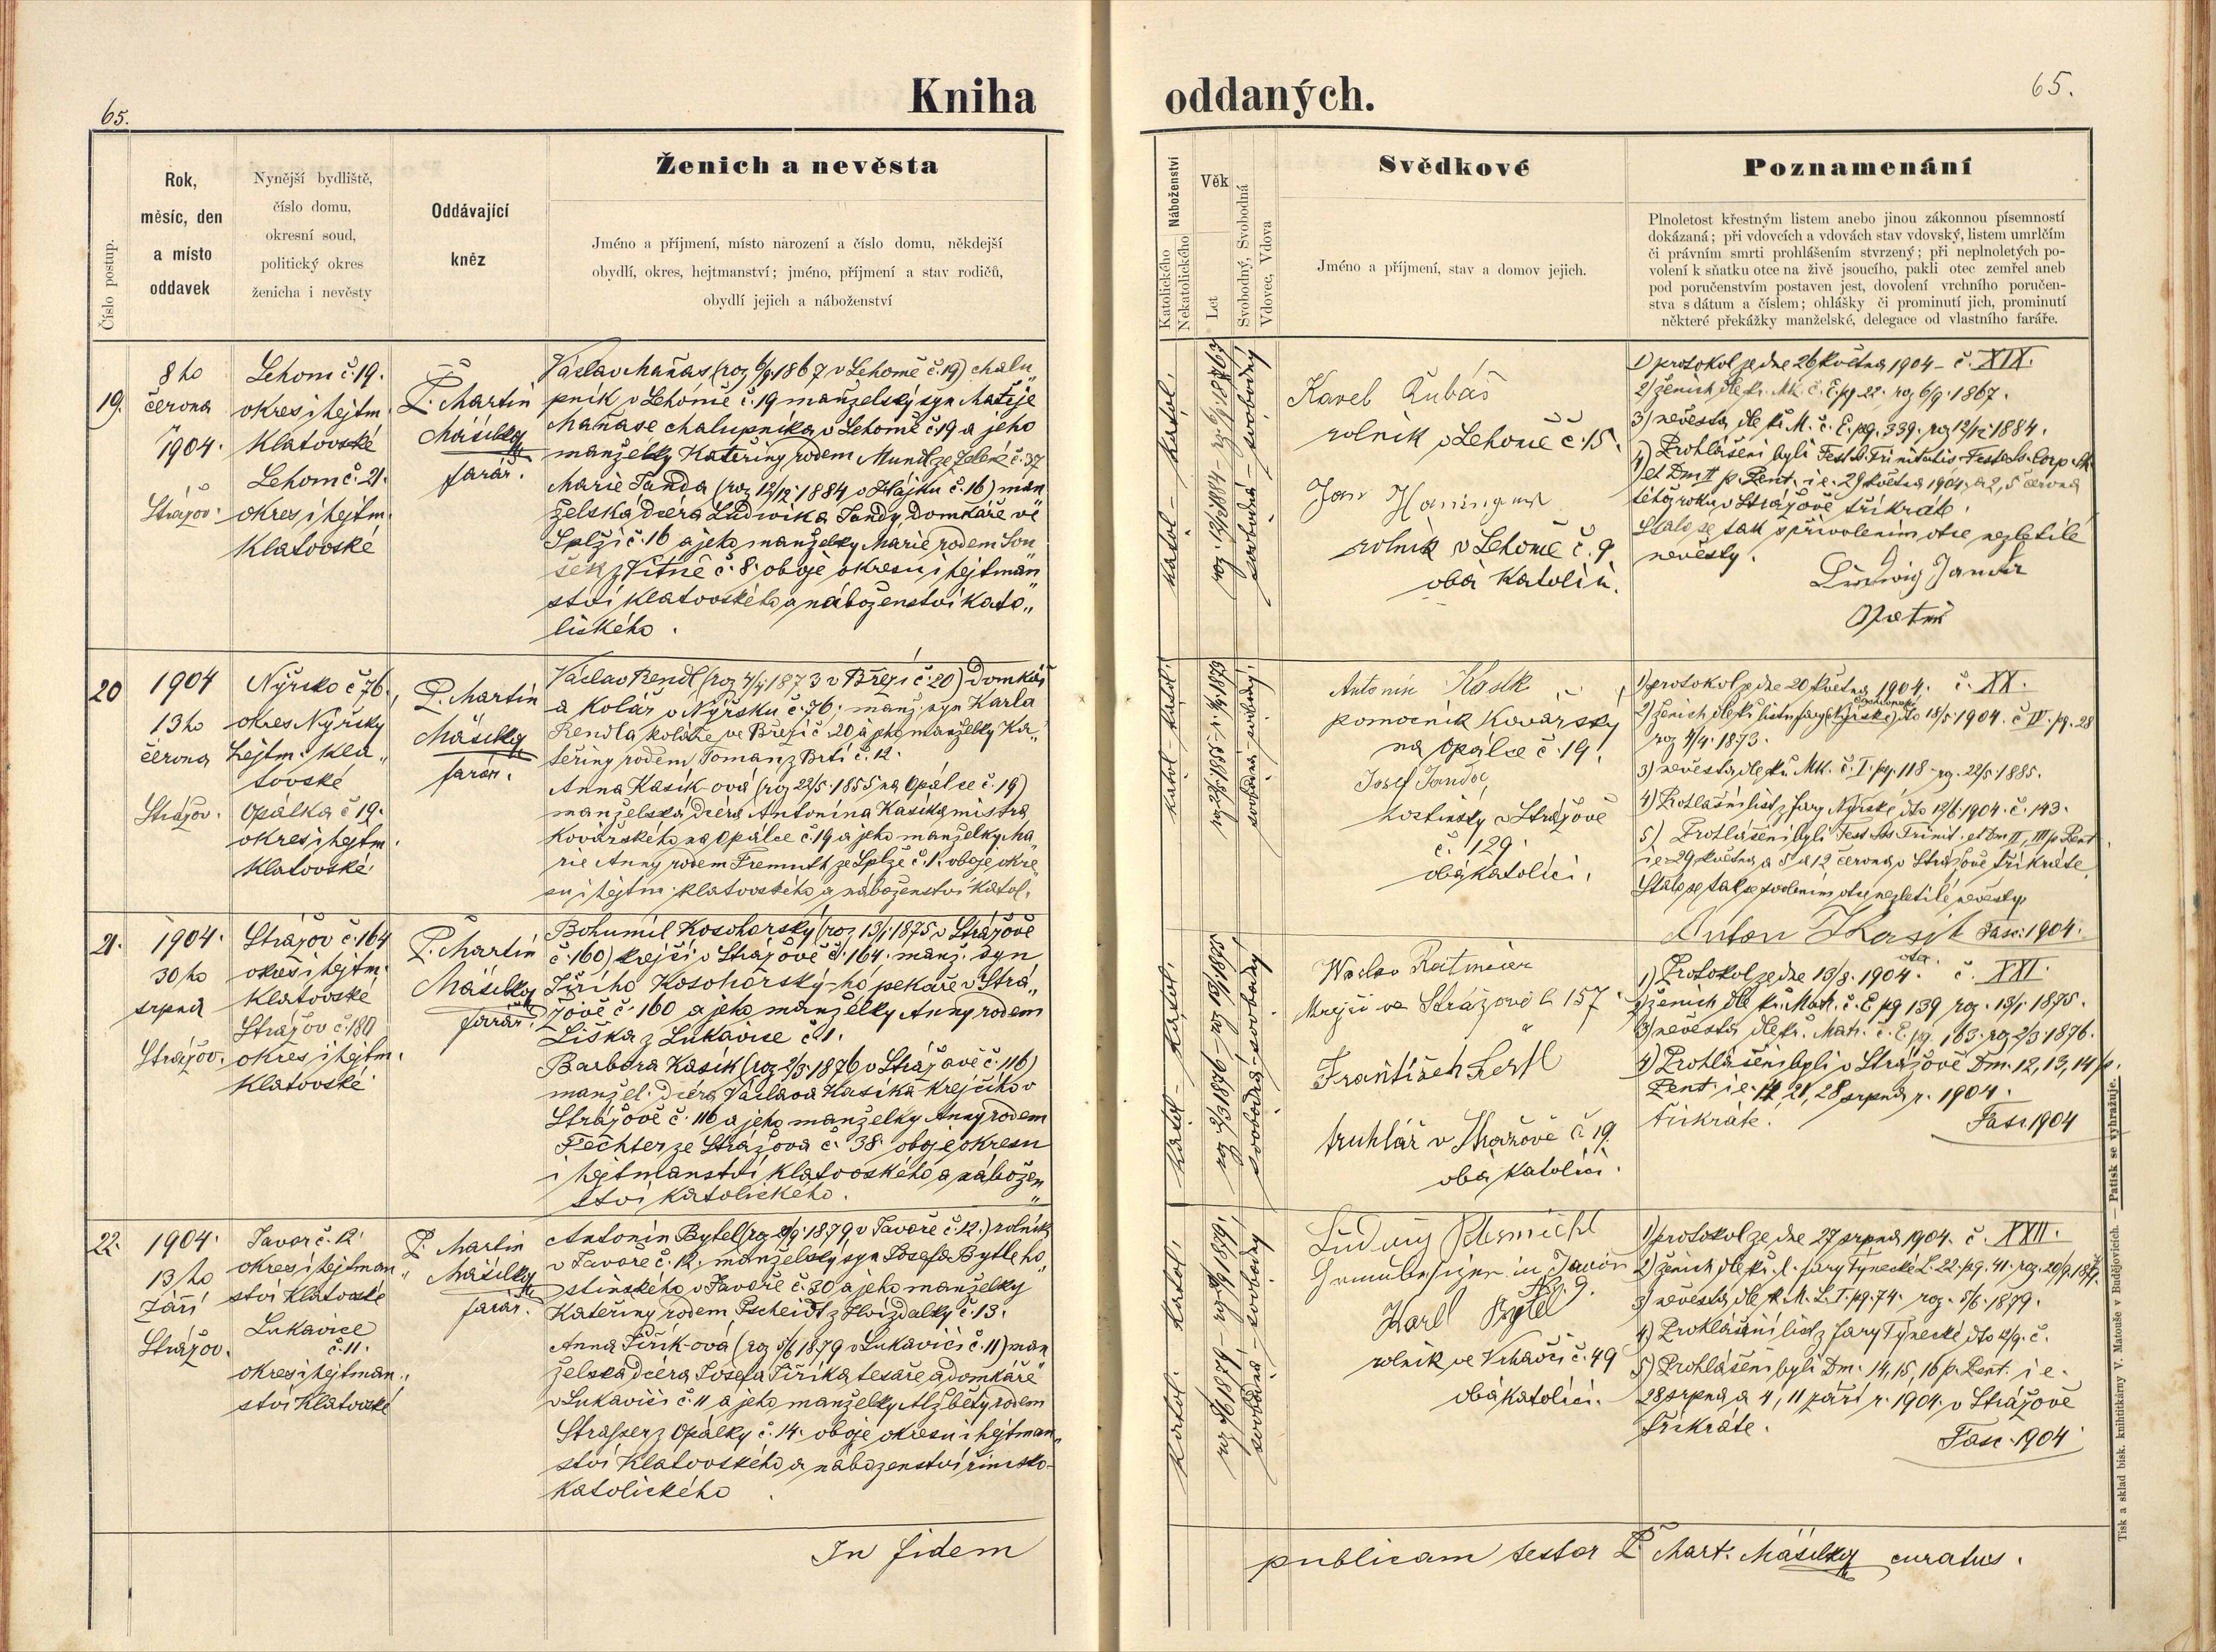 65.
Kniha
oddaných.
65.
Číslo postup.
Rok,
měsíc, den
a místo
oddavek
Nynější bydliště,
číslo domu,
okresní soud,
politický okres
ženicha i nevěsty
Oddávající
kněz
Ženich a nevěsta
Jméno a příjmení, místo národení a číslo domu, někdejší
obydlí, okres, hejtmanství; jméno, příjmení a stav rodičů,
obydlí jejich a náboženství
Náboženství
Katolického
Nekatolického
Věk
Let
Svobodný, Svobodná
Vdovec, Vdova
Svědkové
Jméno a příjmení, stav a domov jejich.
Poznamenání
Plnoletost křestným listem anebo jinou zákonnou písemností
dokázaná; při vdovcích a vdovách stav vdovský, listem umrlčím
či právním smrti prohlášením stvrzený; při neplnoletých po-
volení k sňatku otce na živě jsoucího, pakli otec zemřel aneb
pod poručenstvím postaven jest, dovolení vrchního poručen-
stva s dátum a číslem; ohlášky či prominutí jich, prominutí
některé překážky manželské, delegace od vlastního faráře.
19.
8ho
června
1904.
Strážov.
Lehom č. 19.
okres i hejtm.
Klatovské
Lehom č. 21.
okres i hejtm.
Klatovské
P. Martin
Mäsilko
farář.
Václav Maňas (roz 6/9 1867 v Lehomě č. 19) chalu„
pník v Lehomě č. 19 manželský syn Matěje
Maňase chalupníka v Lehomě č. 19 a jeho
manželky Kateřiny rodem Mundl ze Zelené č. 37
Marie Janda (roz 12/12 1884 v Hájku č. 16) man
želská dcera Ludwika Jandy, domkáře ve
Splži č. 16 a jeho manželky Marie rodem Sou
šek z Vitně č. 8. oboje okresu i hejtman
ství Klatovského a náboženství kato„
lického.
Katol. – Katol.
roz. 12/12 1884 – roz. 6/9 1867
svobodná – svobodný
Karel Kubáš
rolník v Lehomě č. 15.
Jan
rolník v Lehomě č. 9
oba katolíci.
1) protokol ze dne 26 května 1904 – č. XIX.
2) ženich dle kř. Mk. č. E. pg. 22. roz 6/9. 1867.
3) nevěsta dle kř. M. č. E. pg. 339. roz 12/12 1884.
4) Prohlášeni byli Fest. S. Trinitatis Festo Ss. Corp.
et Dm II p. Pent. i e. 29 května 1904, a 2, 5 června
téhož roku v Strážově třikráte.
Stalo se tak s přivolením otce nezletilé
nevěsty.
Ludwig Janda
20
1904
13ho
června
Strážov.
Nýrsko č 76.
okres Nýrsky
hejtm. Kla„
tovské
Opálka č 19.
okres i hejtm.
Klatovské.
P. Martin
Mäsilko
farář.
Václav Rendl (roz 4/4 1873 v Březi č. 20) Domkář
a Kolář v Nýrsku č. 76. manž. syn Karla
Rendla koláře ve Březi č. 20 a jeho manželky Ka„
teřiny rodem Toman z Brti č. 12.
Anna Kasík-ová (roz 22/5 1885 na Opálce č. 19)
manželská dcera Antonína Kasíka mistra
Kovářského na Opálce č. 19 a jeho manželky Ma„
rie Anny rodem Fremuth ze Splže č. 1. oboje okre„
su i hejtm. Klatovského a náboženství katol.
katol – katol.
roz 22/5 1885 – roz 4/4 1873
svobodná – svobodný.
Antonín Kosik
pomocník Kovářský
na Opálce č. 19.
Josef Jandoč
hostinský v Strážově
č. 129.
oba katolíci.
1) protokol ze dne 20 května 1904. č. XX.
2) ženich dle kř. listu fary Nýrské dto 18/5 1904. č IV. pg. 28
roz 4/4. 1873.
3) nevěsta dle kř. Mk. č. I. pg. 118 – roz. 22/5 1885.
4) Prohlášní list z fary Nýrské dto 12/6 1904. č. 143.
5) Prohlášeni byli Fest Ss Trinit. et Dm. II, III p Pent
i e 29 května a 5 a 12 června v Strážově třikráte.
Stalo se tak se svolením otce nezletilé nevěsty.
Anton Kasik Fasc. 1904.
otec
21.
1904.
30ho
srpna
Strážov.
Strážov č. 164
okres i hejtm.
Klatovské
Strážov č. 180
okres i hejtm.
Klatovské.
P. Martin
Mäsilko
farář.
Bohumil Kosohorský (roz 13/1 1875 v Strážově
č. 160) krejčí v Strážově č. 164. manž. syn
Jiřího Kosohorský-ho pekaře v Strá„
žově č. 160 a jeho manželky Anny rodem
Liška z Lukavice č. 1.
Barbora Kasík (roz 2/3 1876 v Strážově č. 116)
manžel. dcera Václava Kasíka krejčího v
Strážově č. 116 a jeho manželky Anny rodem
Fechter ze Strážova č. 38. oboje okresu
i hejtmanství Klatovského a nábožen„
ství katolického.
katol. – katol.
roz 2/3 1876 – roz 13/1 1875
svobodná – svobodný
Waclav Ratmeier
krejčí ve Strážově č. 157
František Lerfl
truhlář v Stražově č. 19.
oba katolíci.
1) Protokol ze dne 13/8. 1904. č. XXI.
2) ženich dle kř. Matr. č. E pg 139 roz. 13/1 1875.
3) nevěsta dle kř. Matr. č. E. pg. 163. roz 2/3 1876.
4) Prohlášeni byli v Strážově Dm. 12, 13, 14 p.
Pent. i e. 14, 21, 28 srpna r. 1904.
třikráte.
Fasc 1904
22.
1904.
13ho
Září
Strážov.
Javor č. 12.
okres i hejtman„
ství Klatovské
Lukavice
č. 11.
okres i hejtman„
ství Klatovské
P. Martin
Mäsilko
farář.
Antonín Bytel (roz 20/9 1879 v Javoře č. 12.) rolník
v Javoře č. 12. manželský syn Josefa Bytle ho„
stinského v Javoře č. 30 a jeho manželky
Kateřiny rodem Pscheidt z Hvízdalky č. 13.
Anna Jiřík-ová (roz 5/6 1879 v Lukavici č. 11) man
želská dcera Josefa Jiříka tesaře a domkáře
v Lukavici č. 11 a jeho manželky Alžběty rodem
Strasser z Opálky č. 14. oboje okresu i hejtman„
ství Klatovského a náboženství římsko-
katolického
Katol. Katol.
roz 5/6 1879 – roz 20/9 1879.
svobodná – svobodný
Ludwig
in Javor
No. 9.
Karl Bytel
rolník ve Vrhavči č. 49
oba katolíci.
1) protokol ze dne 27 srpna 1904. č. XXII.
2) ženich dle kř. l. fary Týnecké L. 22. pg. 41. roz. 20/9. 1879.
3) nevěsta dle k. M. L. I. pg. 74. roz. 5/6. 1879.
4) Prohlášní list z fary Týnecké dto 12/9. č.
5) Prohlášeni byli Dm. 14, 15, 16 p. Pent. i e.
28 srpna a 4, 11 září r. 1904. v Strážově
třikráte.
Fasc. 1904
In fidem
publicam testor P. Mart. Mäsilko curatus.
Tisk a sklad bisk. knihtiskárny v. Matouše v Budějovicích. — Patisk se vyhražuje.